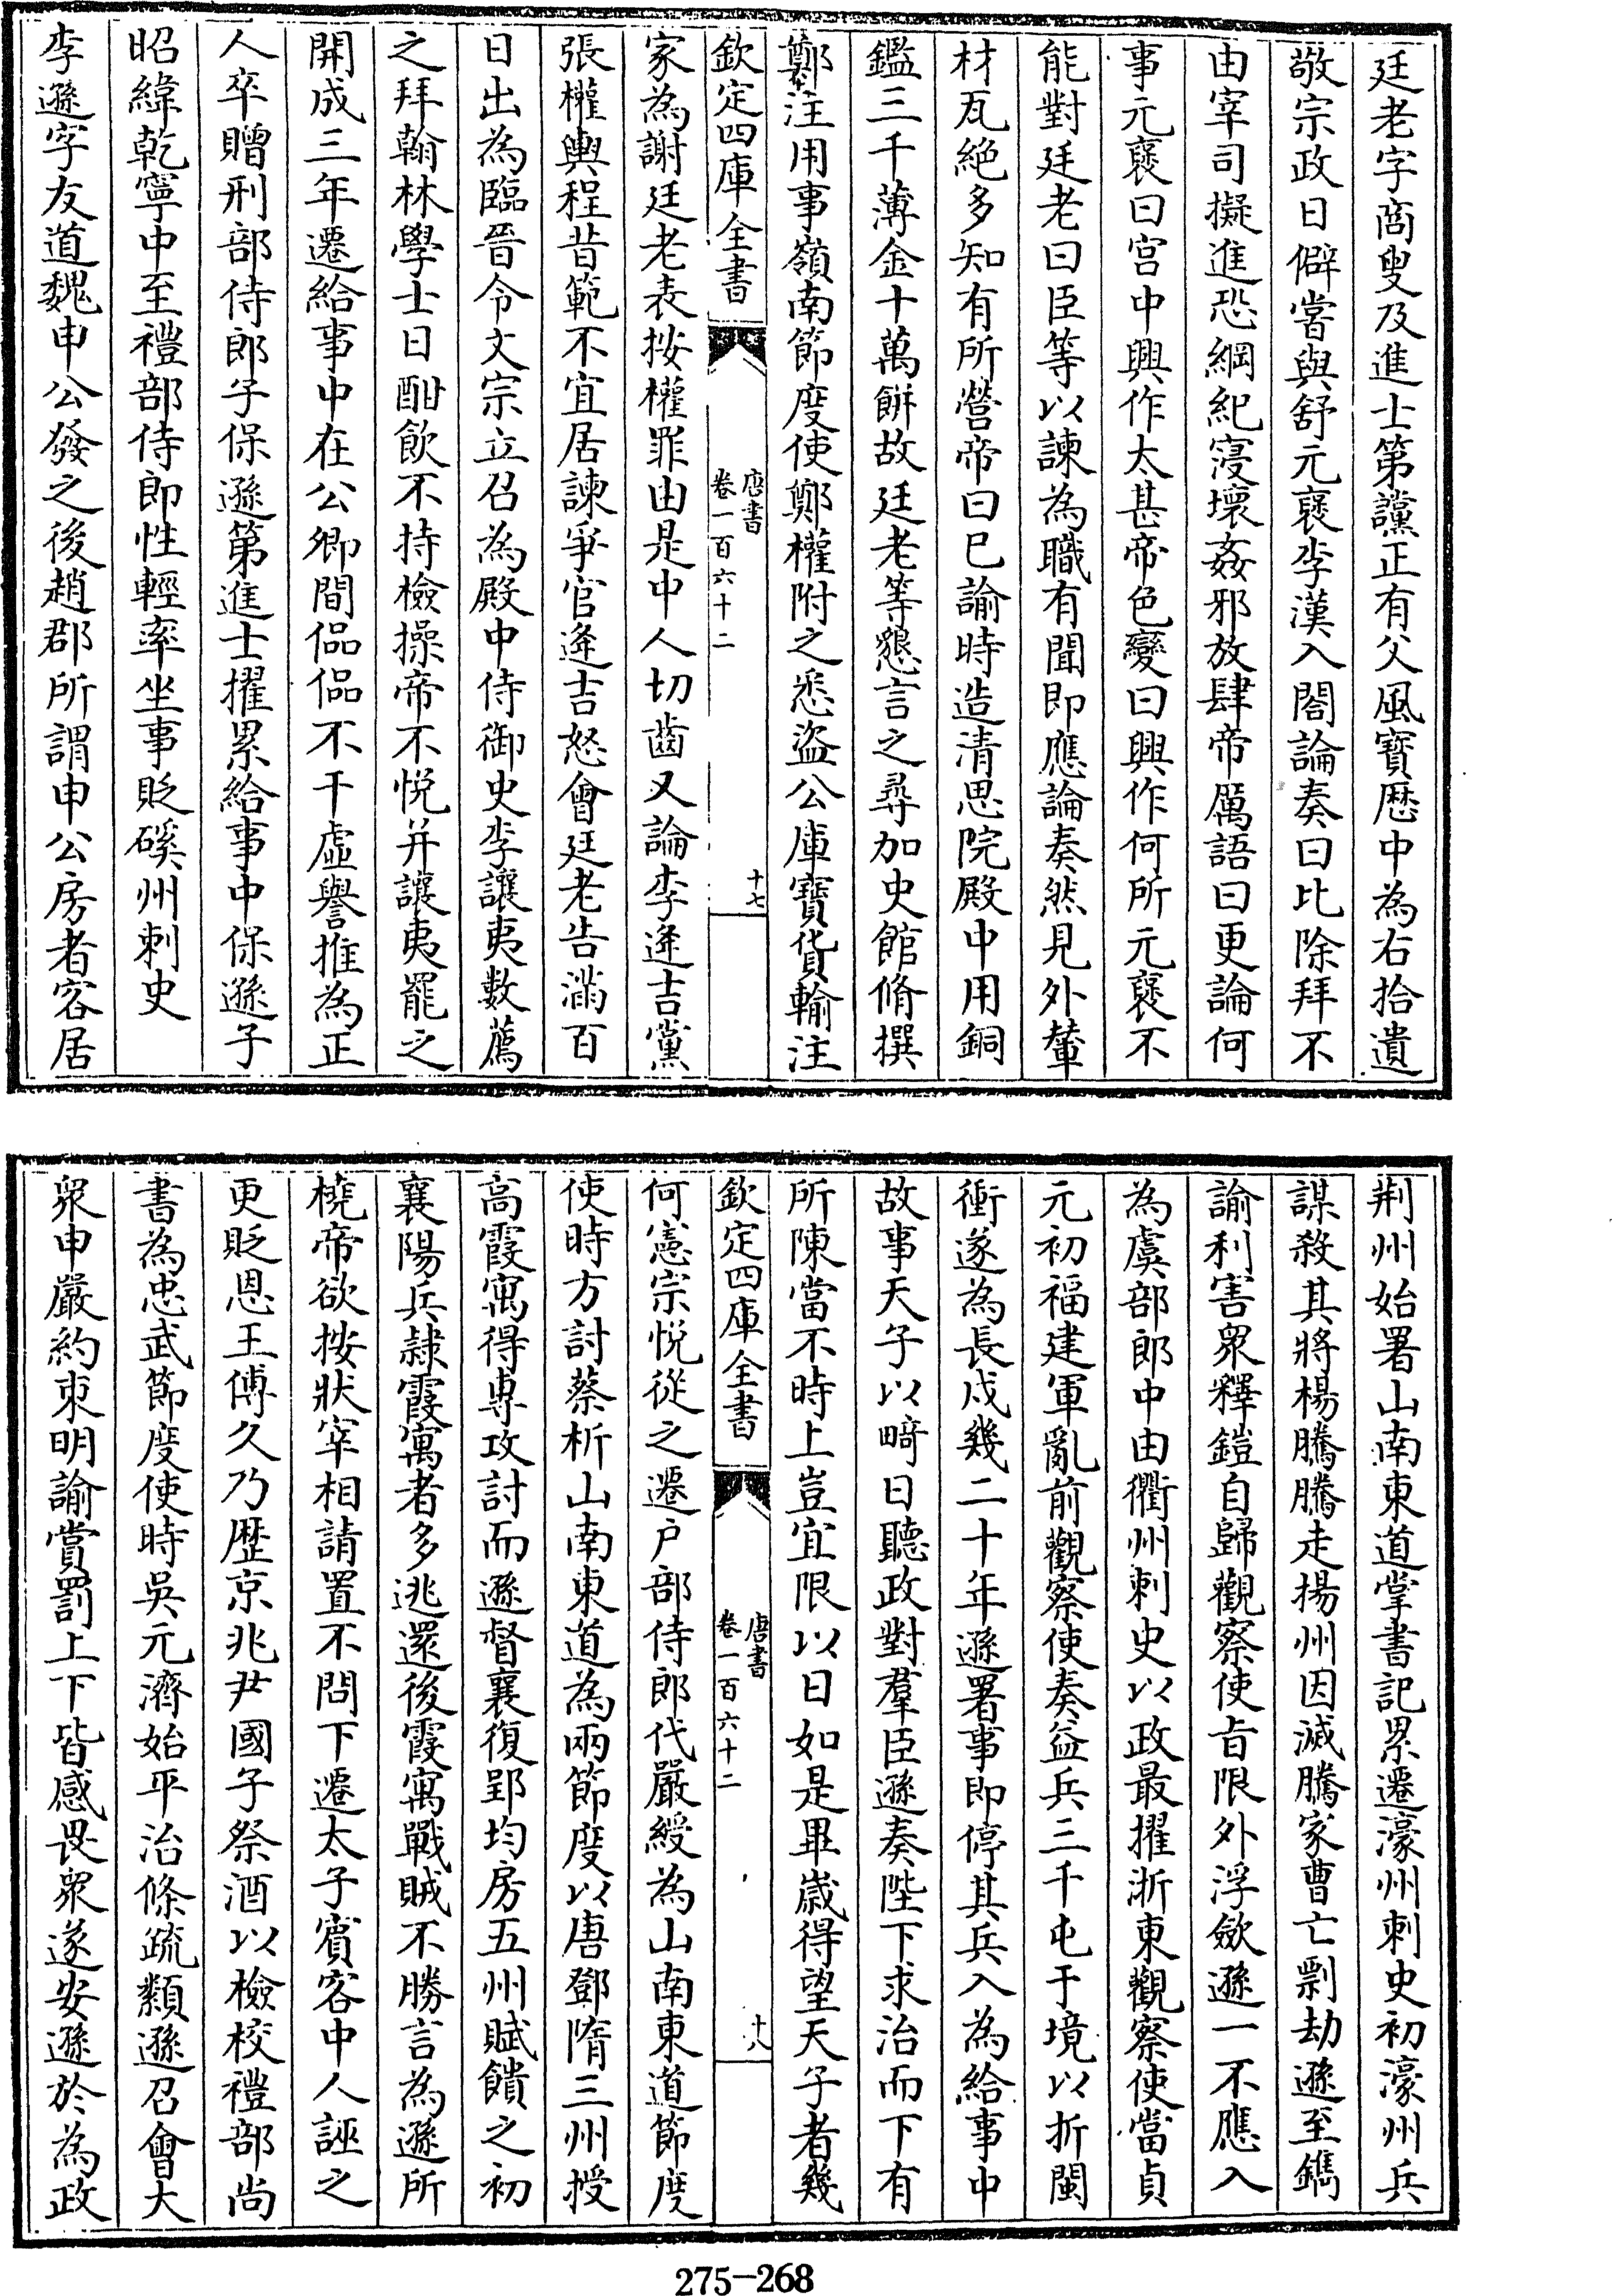 廷老字商叟及進士第讜正有父風寶厯中為右拾遺
敬宗政日僻嘗與舒元褎李漢入閤論奏曰比除拜不
由宰司擬進恐綱紀寖壞姦邪放肆帝厲語曰更論何
事元褎曰宫中興作太甚帝色變曰興作何所元褎不
能對廷老曰臣等以諫為職有聞即應論奏然見外輦
材瓦絶多知有所營帝曰已諭時造清思院殿中用銅
鑑三千薄金十萬餅故廷老等懇言之尋加史館脩撰
鄭注用事嶺南節度使鄭權附之悉盜公庫寶貨輸注
欽定四庫全書
唐書
卷一百六十二
十七
家為謝廷老表按權罪由是中人切齒又論李逢吉黨
張權輿程昔範不宜居諫爭官逢吉怒會廷老告滿百
日出為臨晉令文宗立召為殿中侍御史李讓夷數薦
之拜翰林學士日酣飲不持檢操帝不悦并讓夷罷之
開成三年遷給事中在公卿間侃侃不干虛譽推為正
人卒贈刑部侍郎子保遜第進士擢累給事中保遜子
昭緯乾寧中至禮部侍郎性輕率坐事貶磎州刺史
李遜字友道魏申公發之後趙郡所謂申公房者客居
荆州始署山南東道掌書記累遷濠州刺史初濠州兵
謀殺其將楊騰騰走揚州因滅騰家曹亡剽劫遜至鐫
諭利害衆釋鎧自歸觀察使旨限外浮歛遜一不應入
為虞部郎中由衢州刺史以政最擢浙東觀察使當貞
元初福建軍亂前觀察使奏益兵三千屯于境以折閩
衝遂為長戍幾二十年遜署事即停其兵入為給事中
故事天子以畸日聽政對羣臣遜奏陛下求治而下有
所陳當不時上豈宜限以日如是畢歲得望天子者幾
欽定四庫全書
唐書
卷一百六十二
十八
何憲宗悦從之遷户部侍郎代嚴綬為山南東道節度
使時方討蔡析山南東道為兩節度以唐鄧隋三州授
高霞寓得專攻討而遜督襄復郢均房五州賦饋之初
襄陽兵隷霞寓者多逃還後霞寓戰賊不勝言為遜所
橈帝欲按狀宰相請置不問下遷太子賓客中人誣之
更貶恩王傅久乃歴京兆尹國子祭酒以檢校禮部尚
書為忠武節度使時吳元濟始平治條疏纇遜召會大
衆申嚴約束明諭賞罰上下皆感畏衆遂安遜於為政
275-268